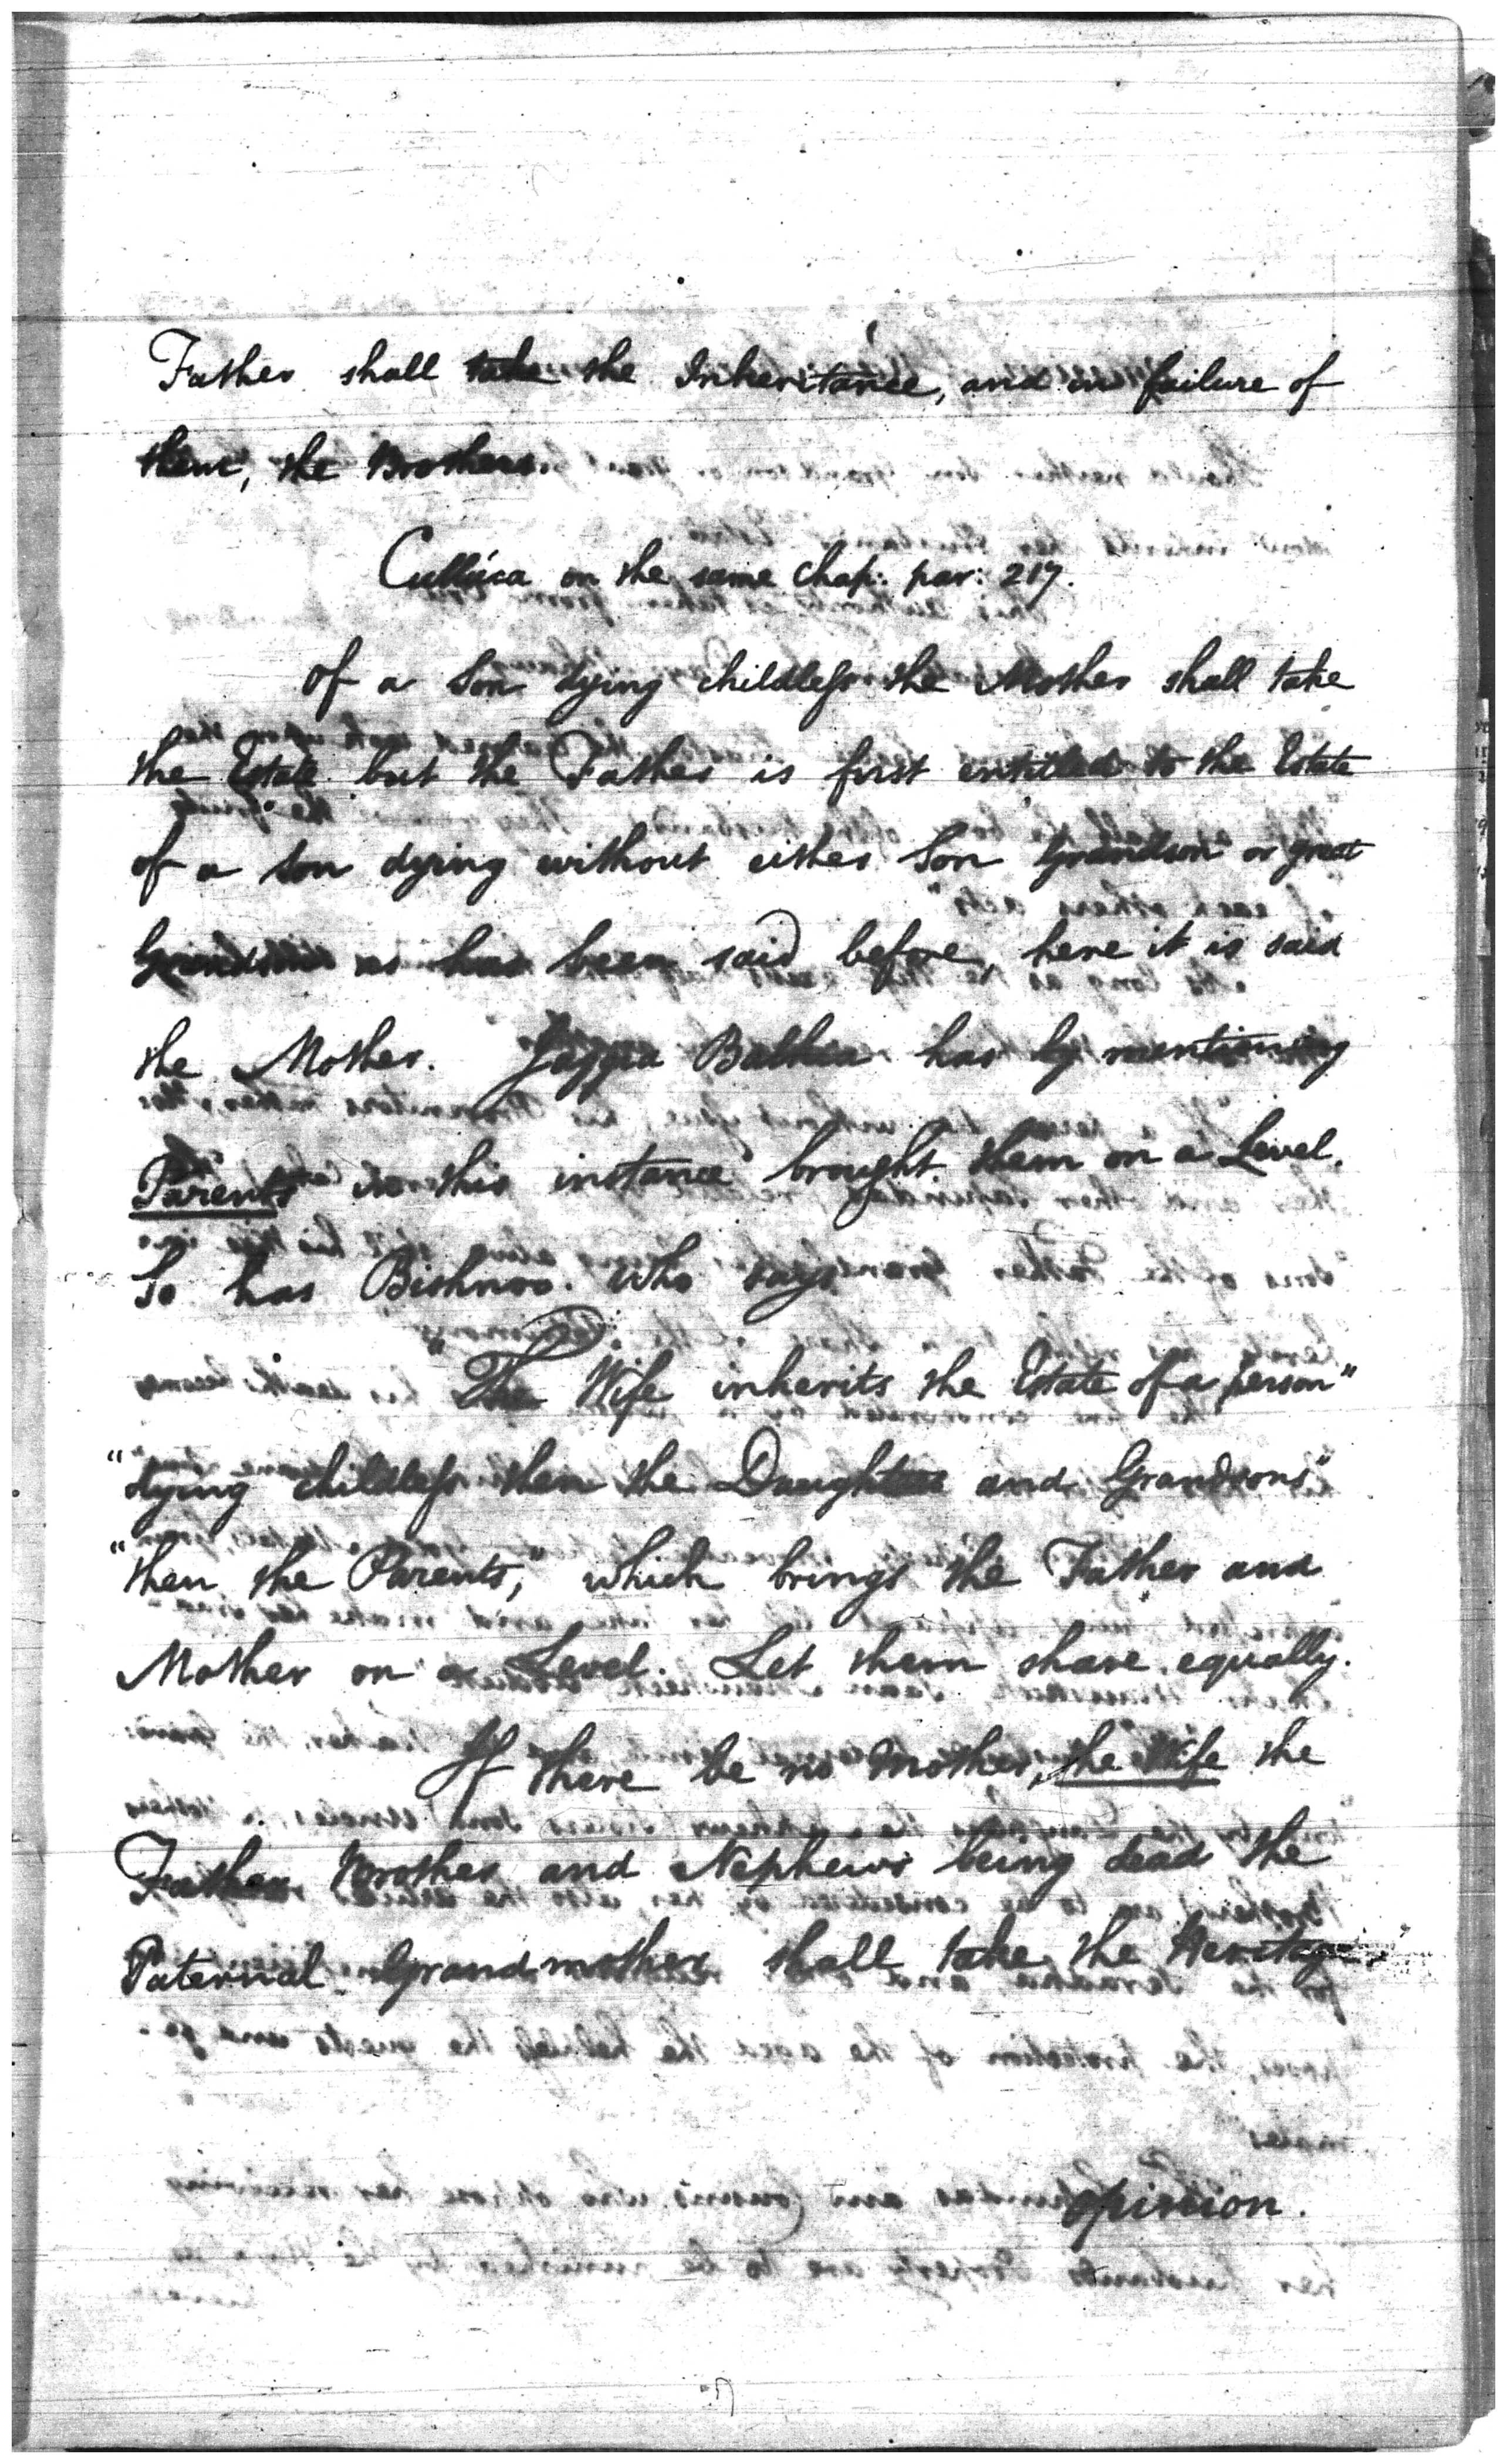 Father shall take the Inheritance, and in failure of
them, the Brothers.
Cullúca on the same Chap: par: 217.
Of a Son dying childless the Mother shall take
the Estate but the Father is first entitled to the Estate
of a Son dying without either Son Grandson or great
Grandson as has been said before, here it is said
the Mother. Jaggea Bulkia has by mentioning
Parents in this instance brought them on a Level.
So has Bishnoo. Who says
"The Wife inherits the Estate of a person"
"dying childless then the Daughters and Grandsons"
"then the Parents," which brings the Father and
Mother on a Level. Let them share equally.
If there be no Mother, the Wife the
Father Brother and Nephews being dead the
Paternal Grandmother shall take the Heritage."
Opinion.